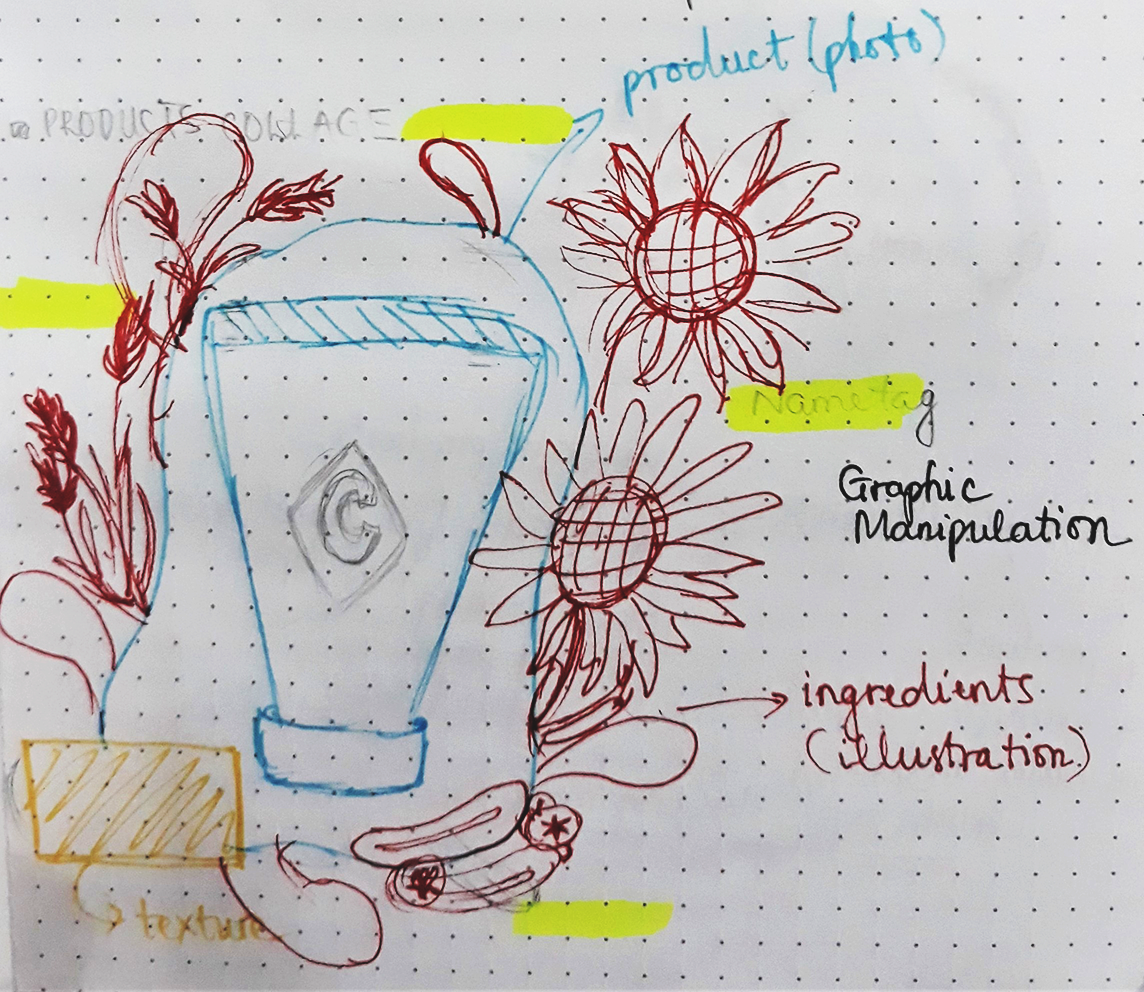 product (photo)
PRODUCTS COLLAGE
Nametag
Graphic
Manipulation
C
ingredients
(illustration)
texture